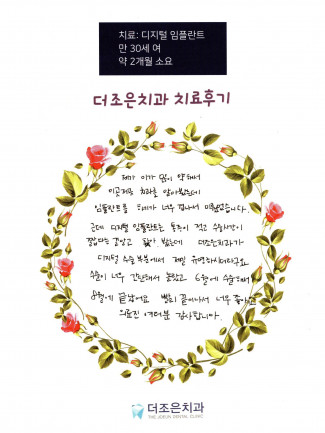 치료: 디지털 임플란트
만 30세 여
약 2개월 소요
더조은치과 치료후기
제가 이가 많이 약해서
이곳저곳 치과를 알아봤는데
임플란트를 하기가 너무 겁나서 미뤘었습니다.
근데 디지털 임플란트는 통증이 적고 수술시간이
짧았다는 걸알고 찾아 봤는데 더조은치과가
디지털 수술 부분에서 제일 유명하시더라구요
수술이 너무 간단해서 놀랐고 6월에 수술해서
8월에 끝났어요 빨리 끝이나서 너무 좋아요
의료진 여러분 감사합니다.
더조은치과
THE JOEUN DENTAL CLINIC